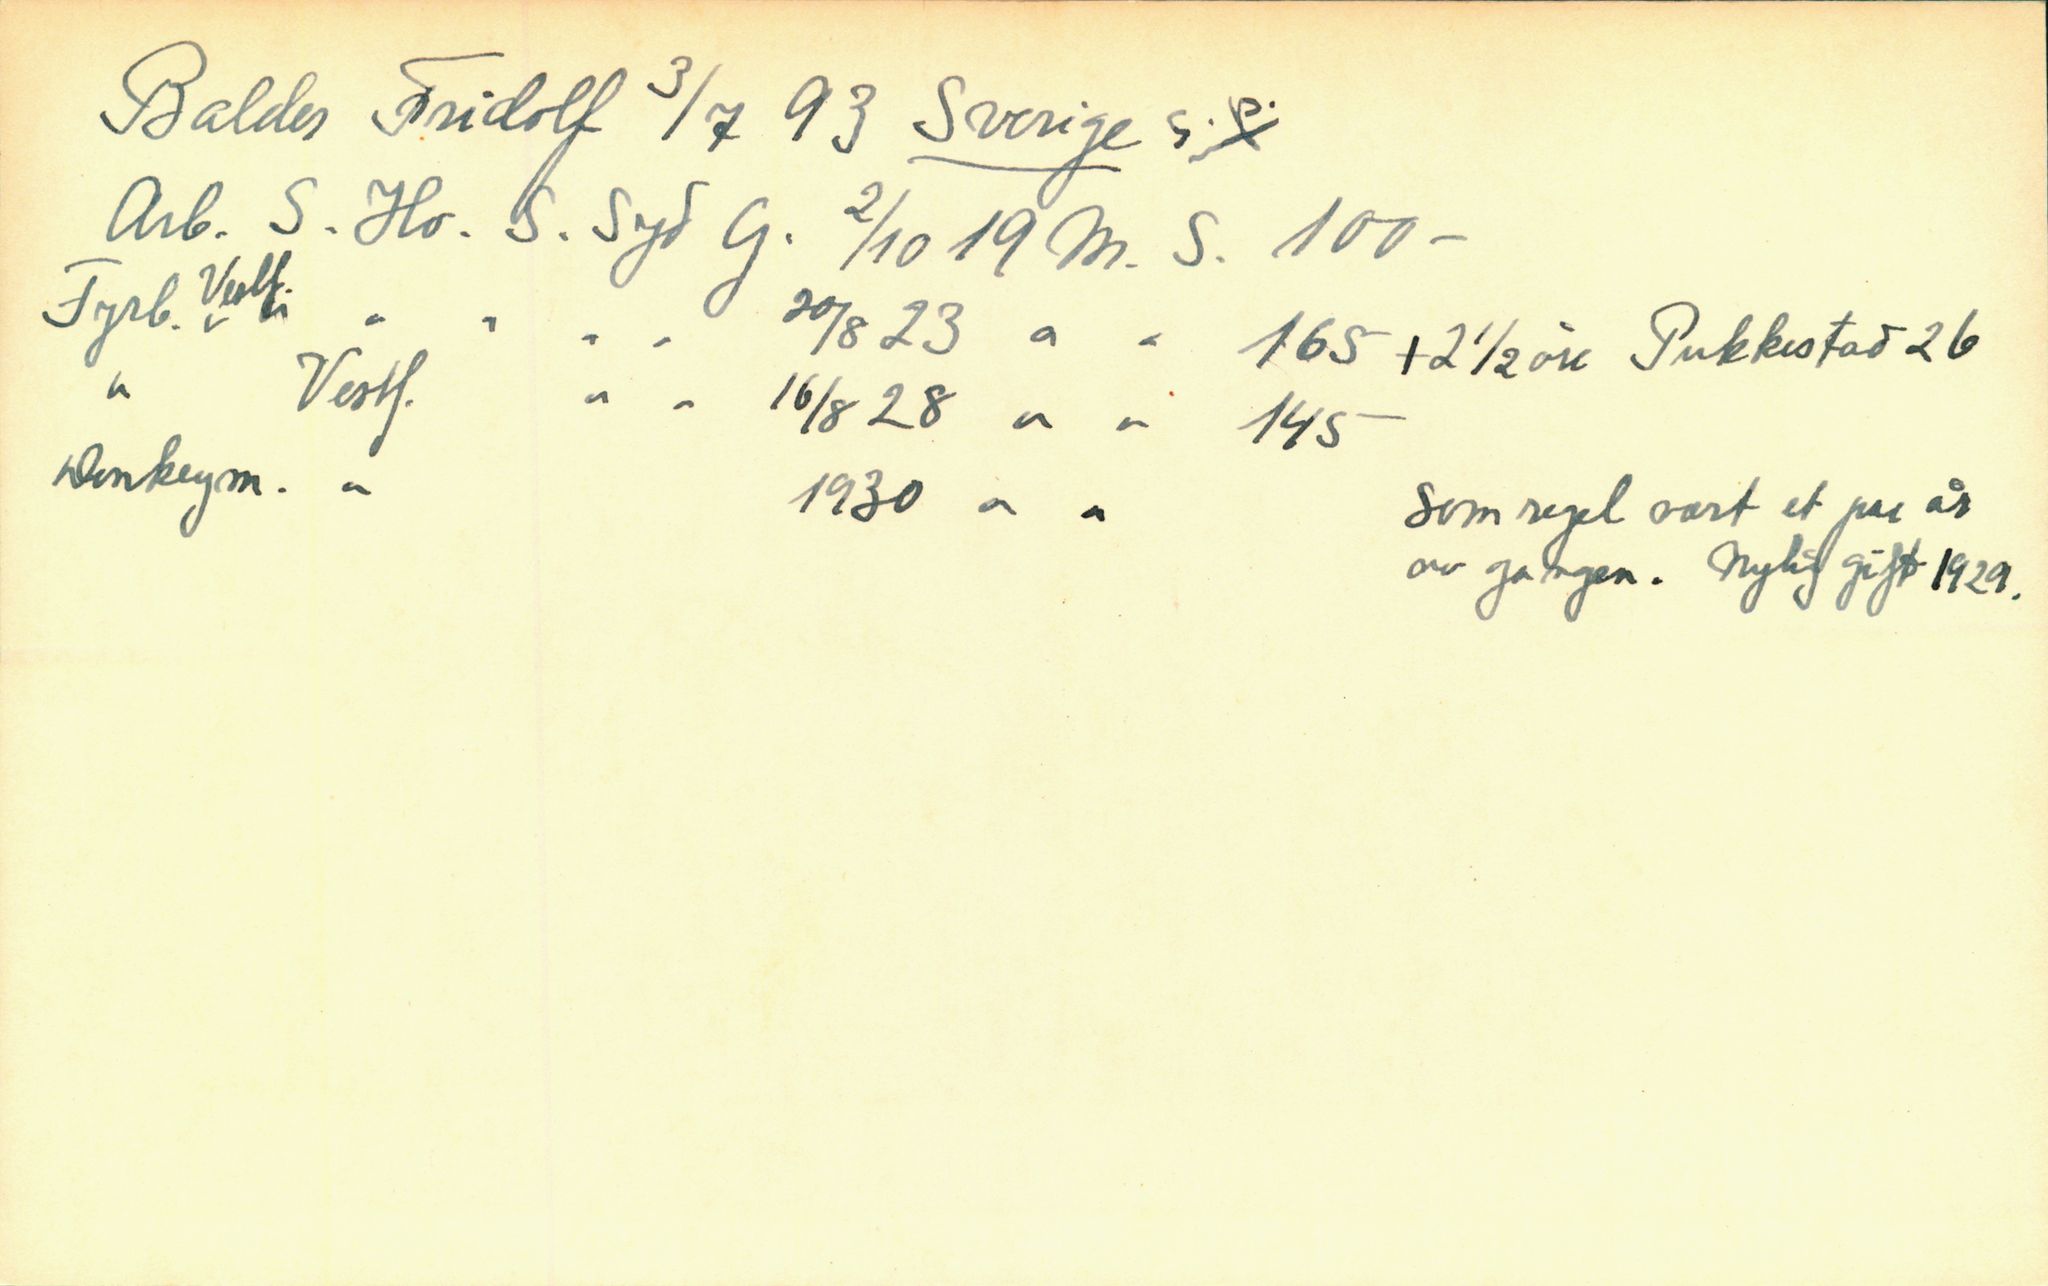 Balder Fridolf 3/7 93 Sverige
Arb. S. Ho. S. Syd G. 2/10 19 M. S. 100 -
Fyrb. Vestf. " " " " 20/8 23 " " 165 + 2 1/2 öre Pukkestad 26
" Vestf. " " 16/8 28 " " 145 -
Donkeym. " 1930 " "
Som regel vært et par år
av gangen. Nylig gift 1929.